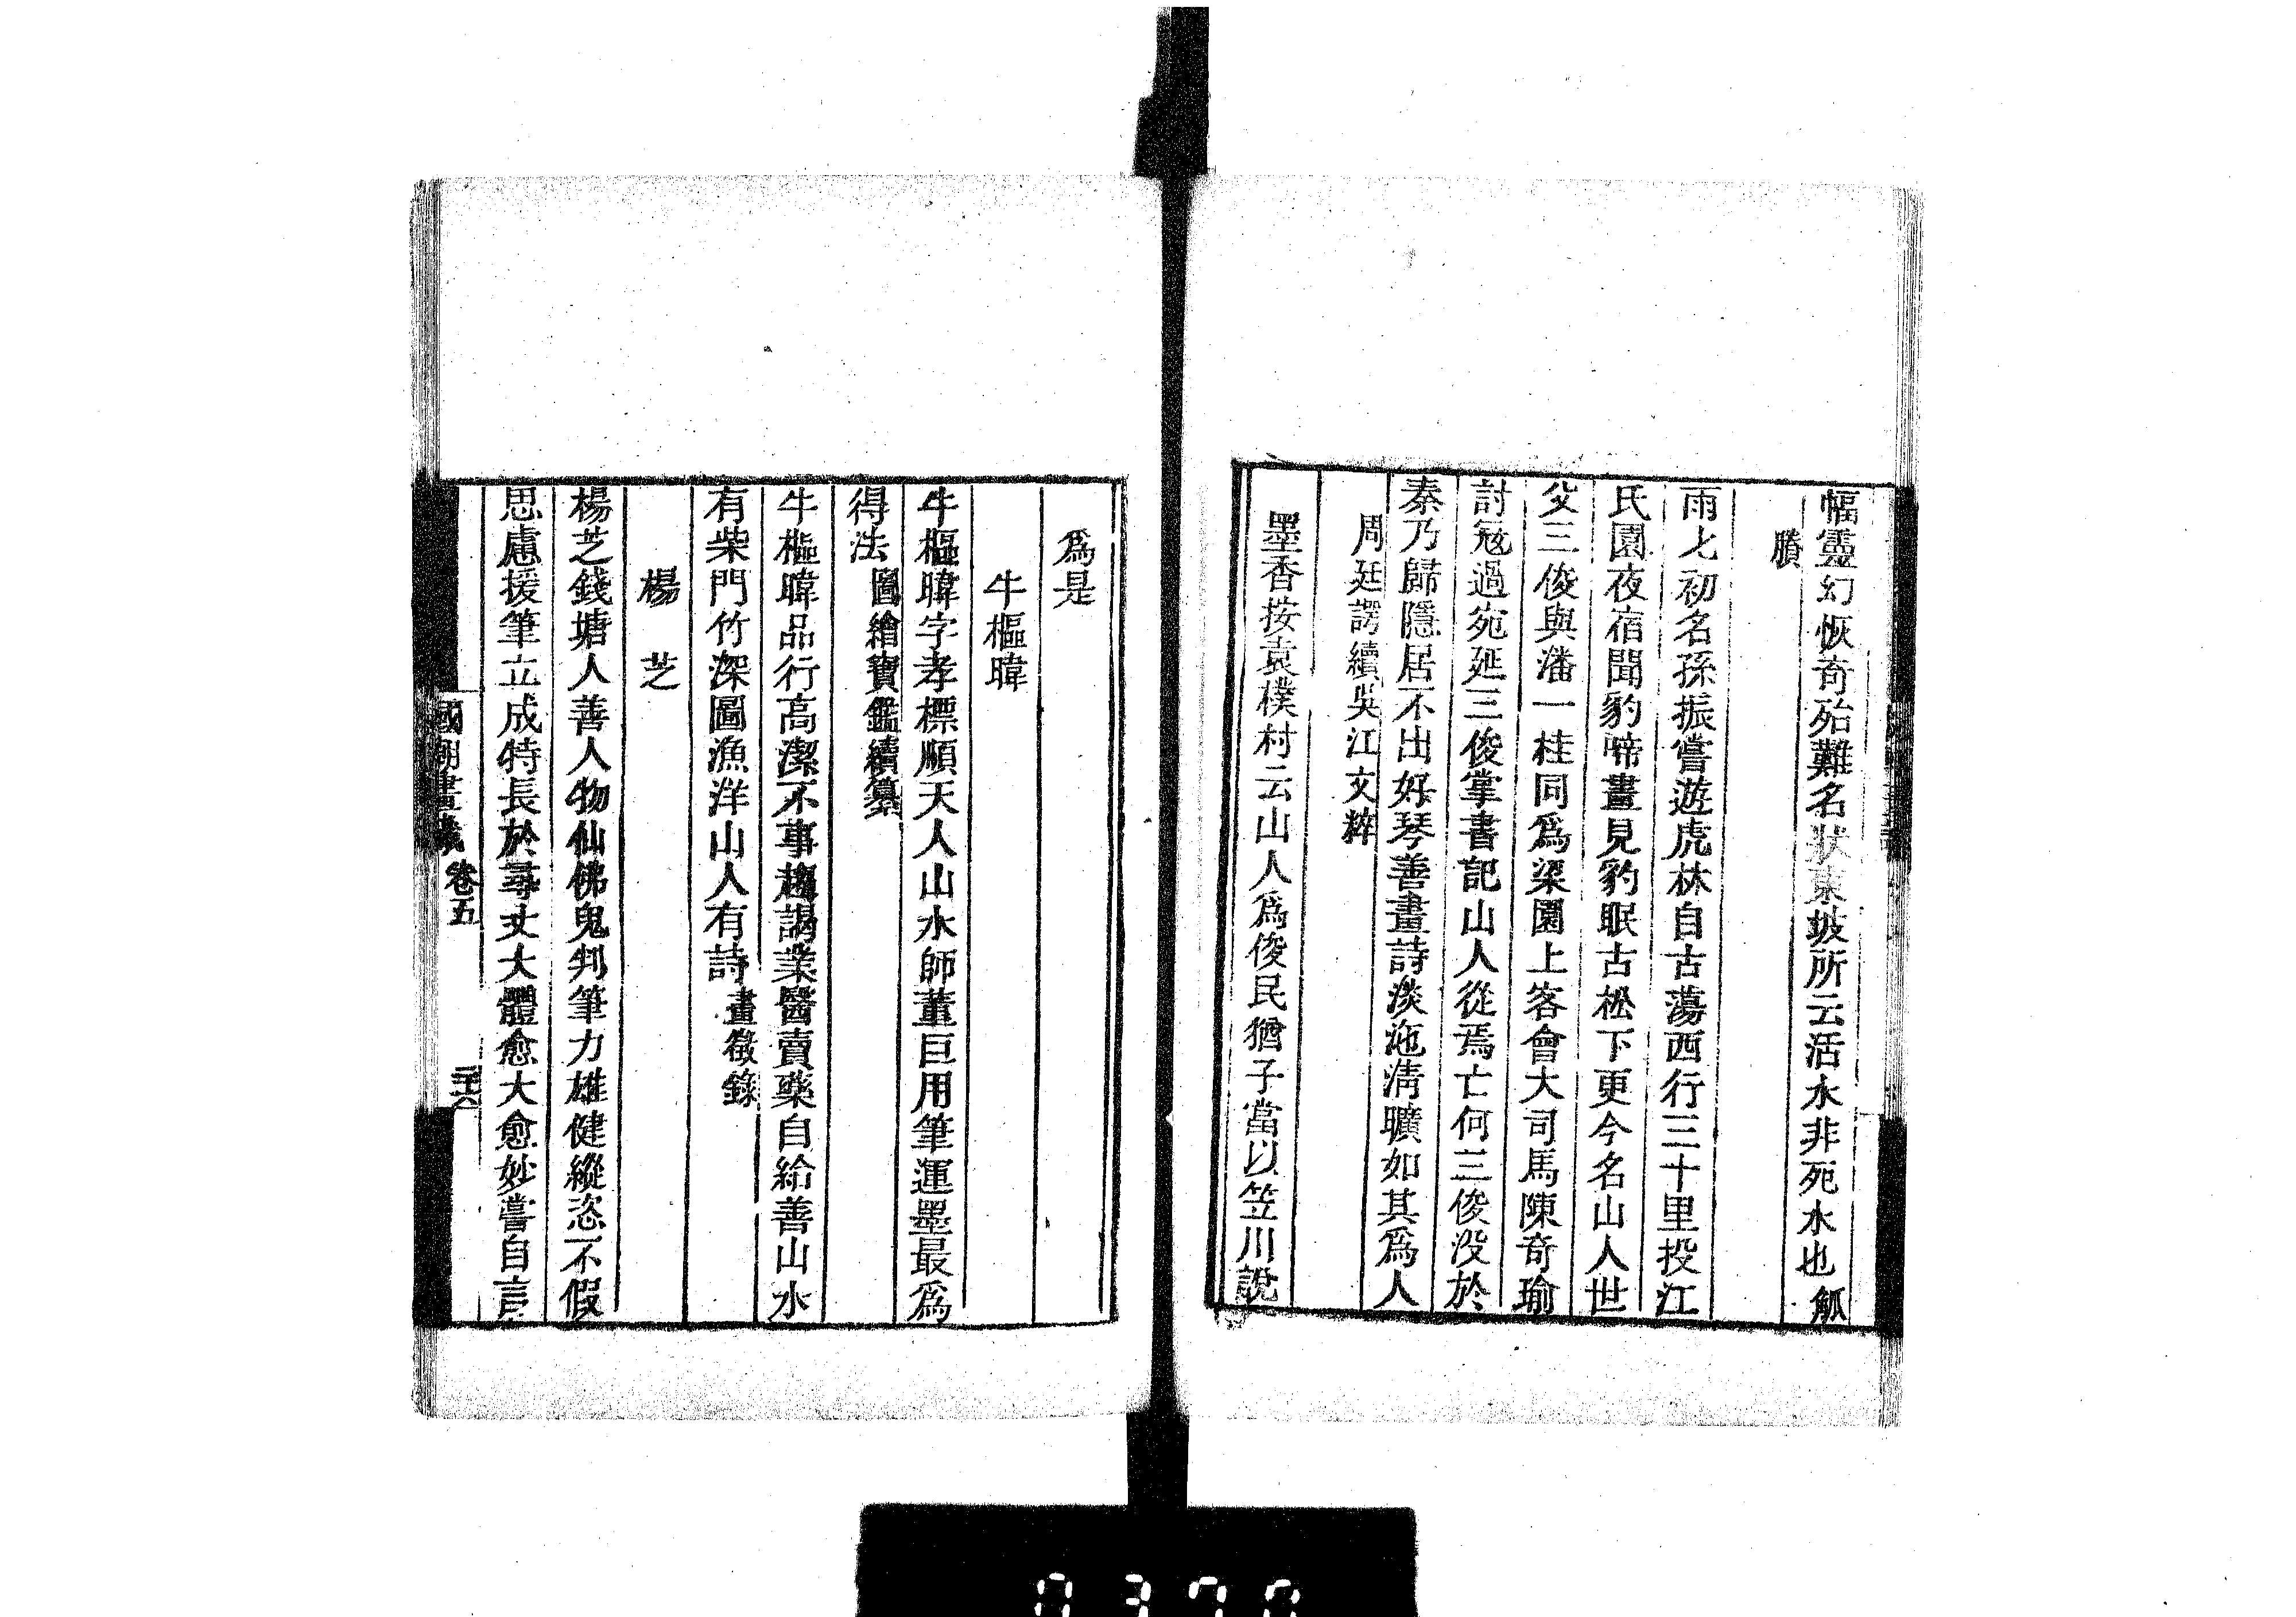 幅靈幻恢奇殆難名狀東坡所云活水非死水也觚
賸
雨七初名孫振嘗遊虎林自古蕩西行三十里投江
氏園夜宿聞豹啼晝見豹眠古松下更今名山人世
父三俊與潘一桂同爲梁園上客會大司馬陳奇瑜
討冦過宛延三俊掌書記山人從焉亡何三俊没於
秦乃歸隱居不出好琴善畫詩淡沲淸曠如其爲人
周廷諤續吳江文粹
墨香按袁樸村云山人爲俊民猶子當以笠川說
爲是
牛樞暐
牛樞暐字孝標順天人山水師董巨用筆運墨最爲
得法圖繪寶鑑續纂
牛樞暐品行高潔不事趨謁業醫賣藥自給善山水
有柴門竹深圖漁洋山人有詩畫徵錄
楊芝
楊芝錢塘人善人物仙佛鬼判筆力雄健縱恣不假
思慮援筆立成特長於尋丈大體愈大愈妙嘗自言
國朝畫識 卷五
0370